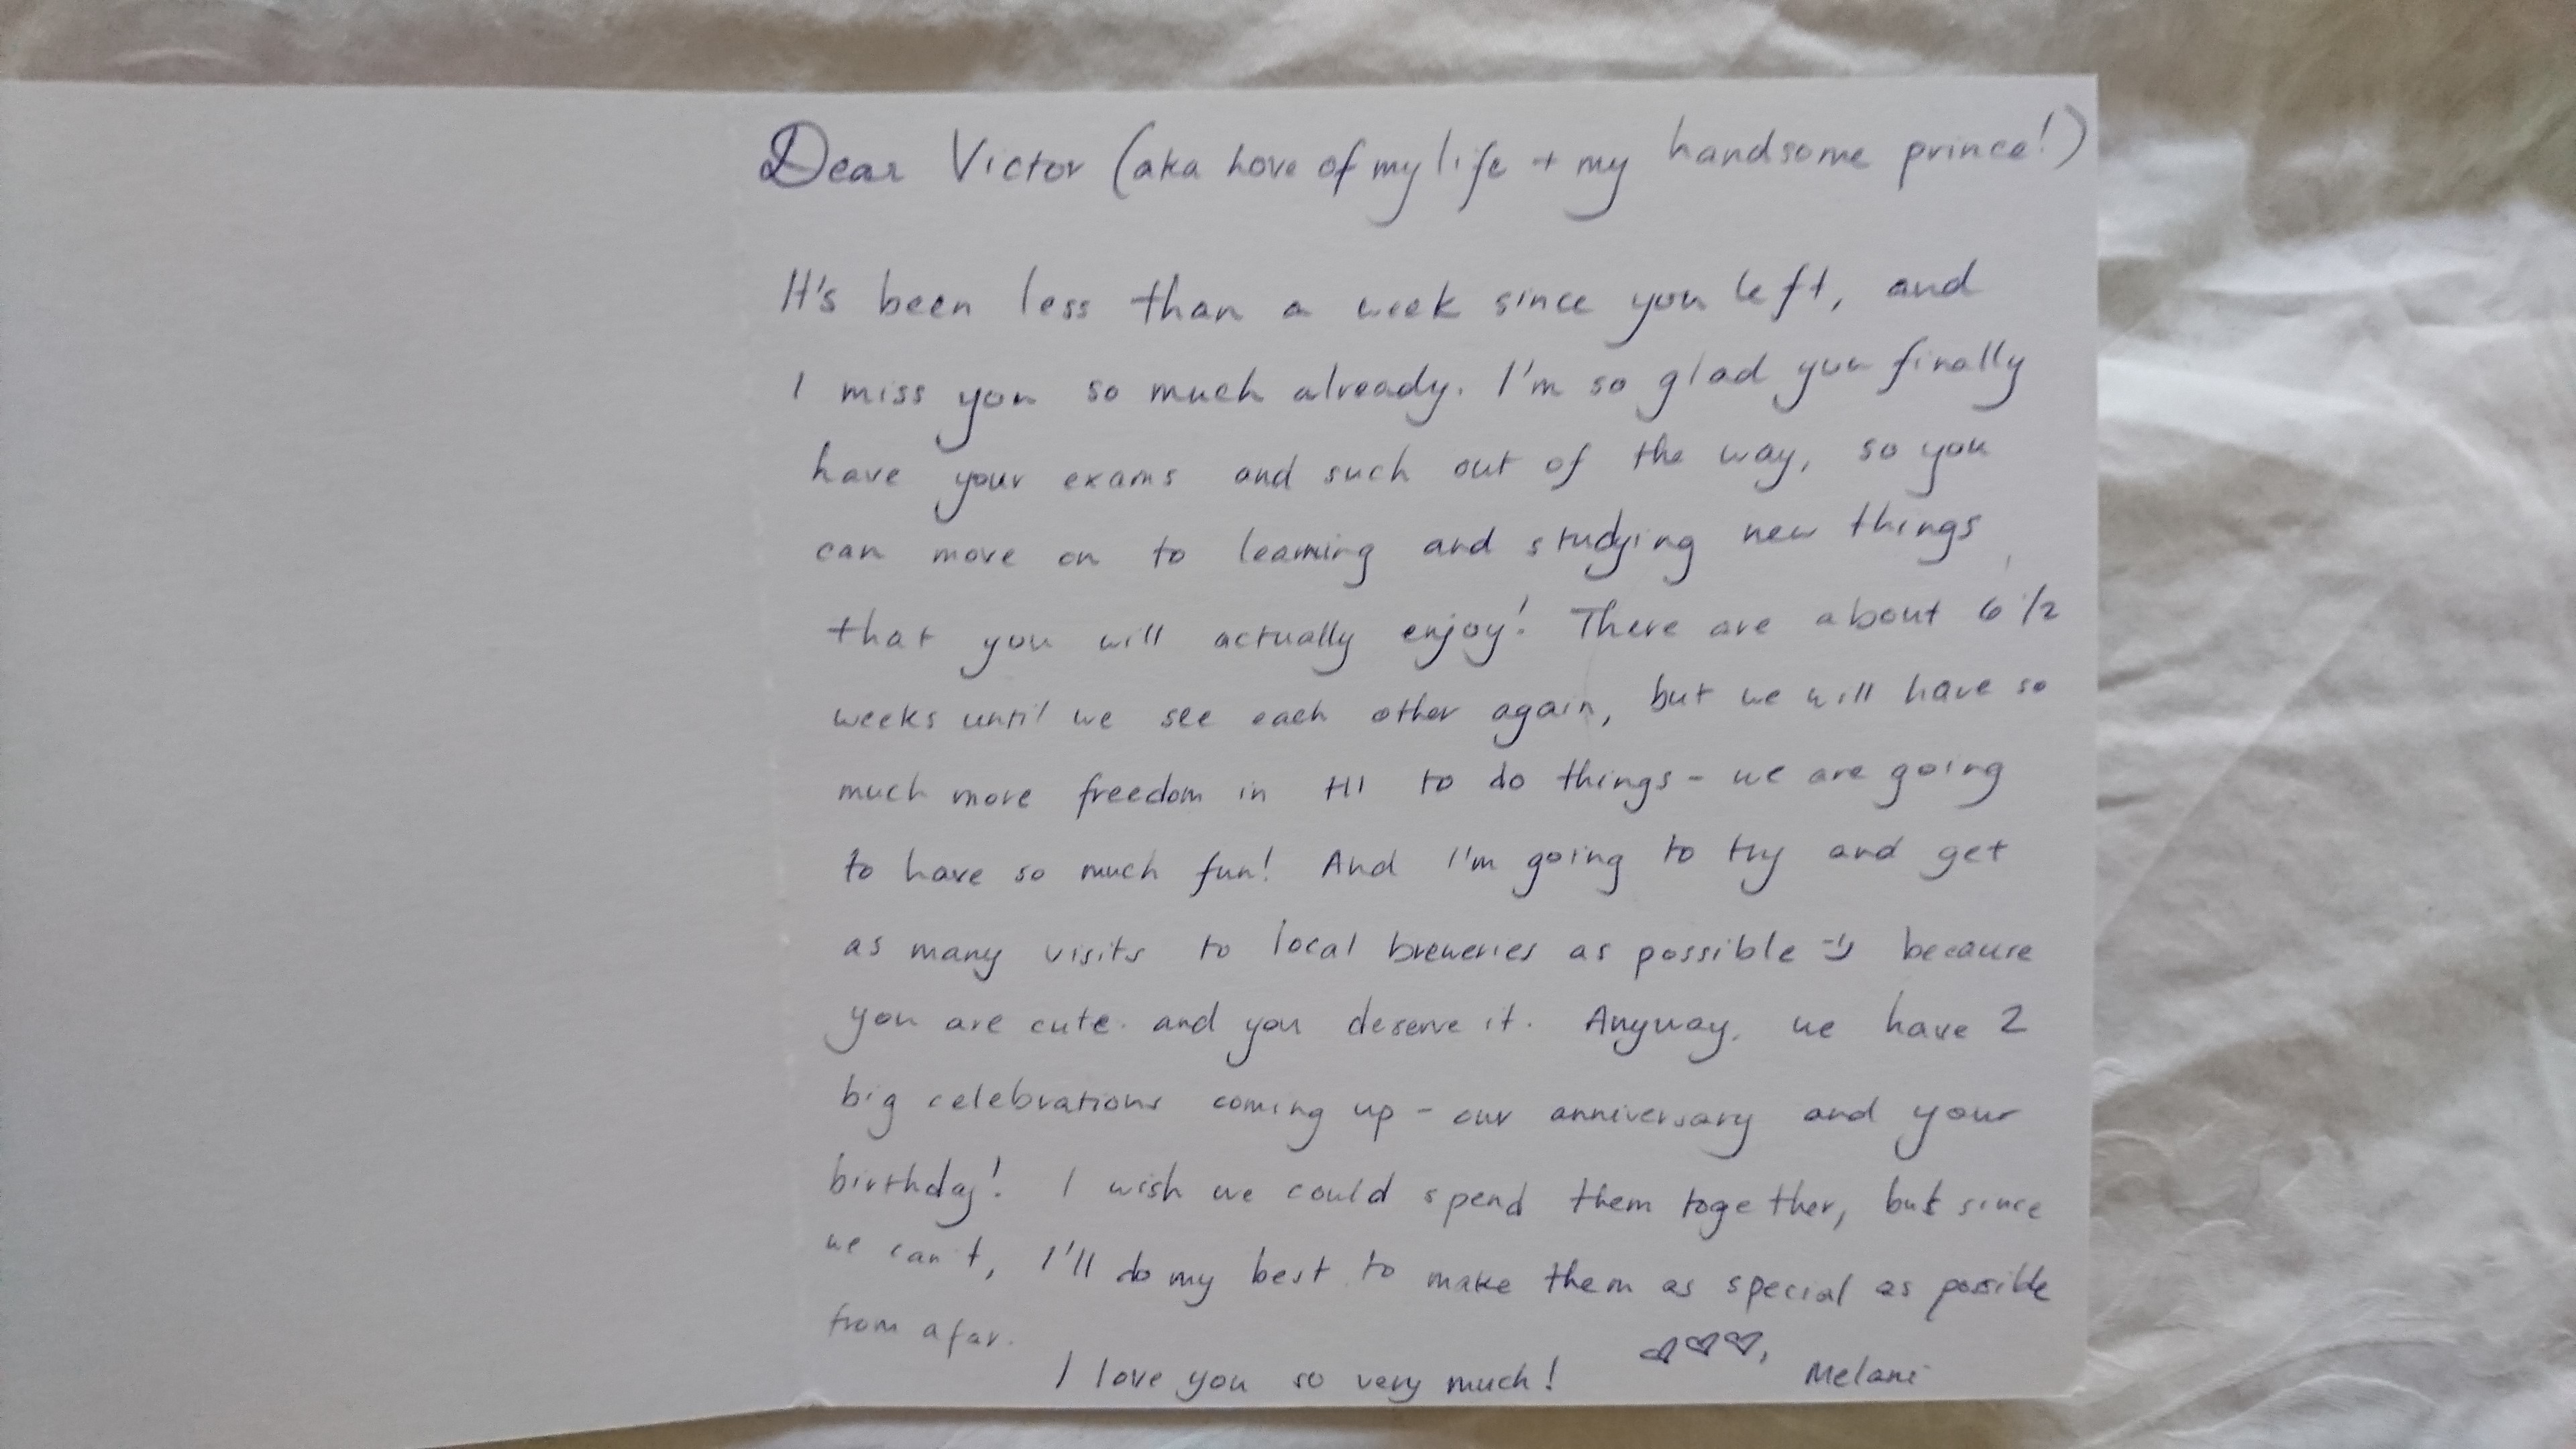 Dear Victor (aka Love of my life + my handsome prince!)
It's been less than a week since you left, and
I miss you so much already. I'm so glad you finally
have your exams and such out of the way, so you
can move on to learning and studying new things
that you will actually enjoy! There are about 6 1/2
weeks until we see each other again, but we will have so
much more freedom in HI to do things - we are going
to have so much fun! And I'm going to try and get
as many visits to local breweries as possible :) because
you are cute and you deserve it. Anyway, we have 2
big celebrations coming up - our anniversary and your
birthday! I wish we could spend them together, but since
we can't, I'll do my best to make them as special as possible
from afar.
I love you so very much! ♡♡♡, Melani